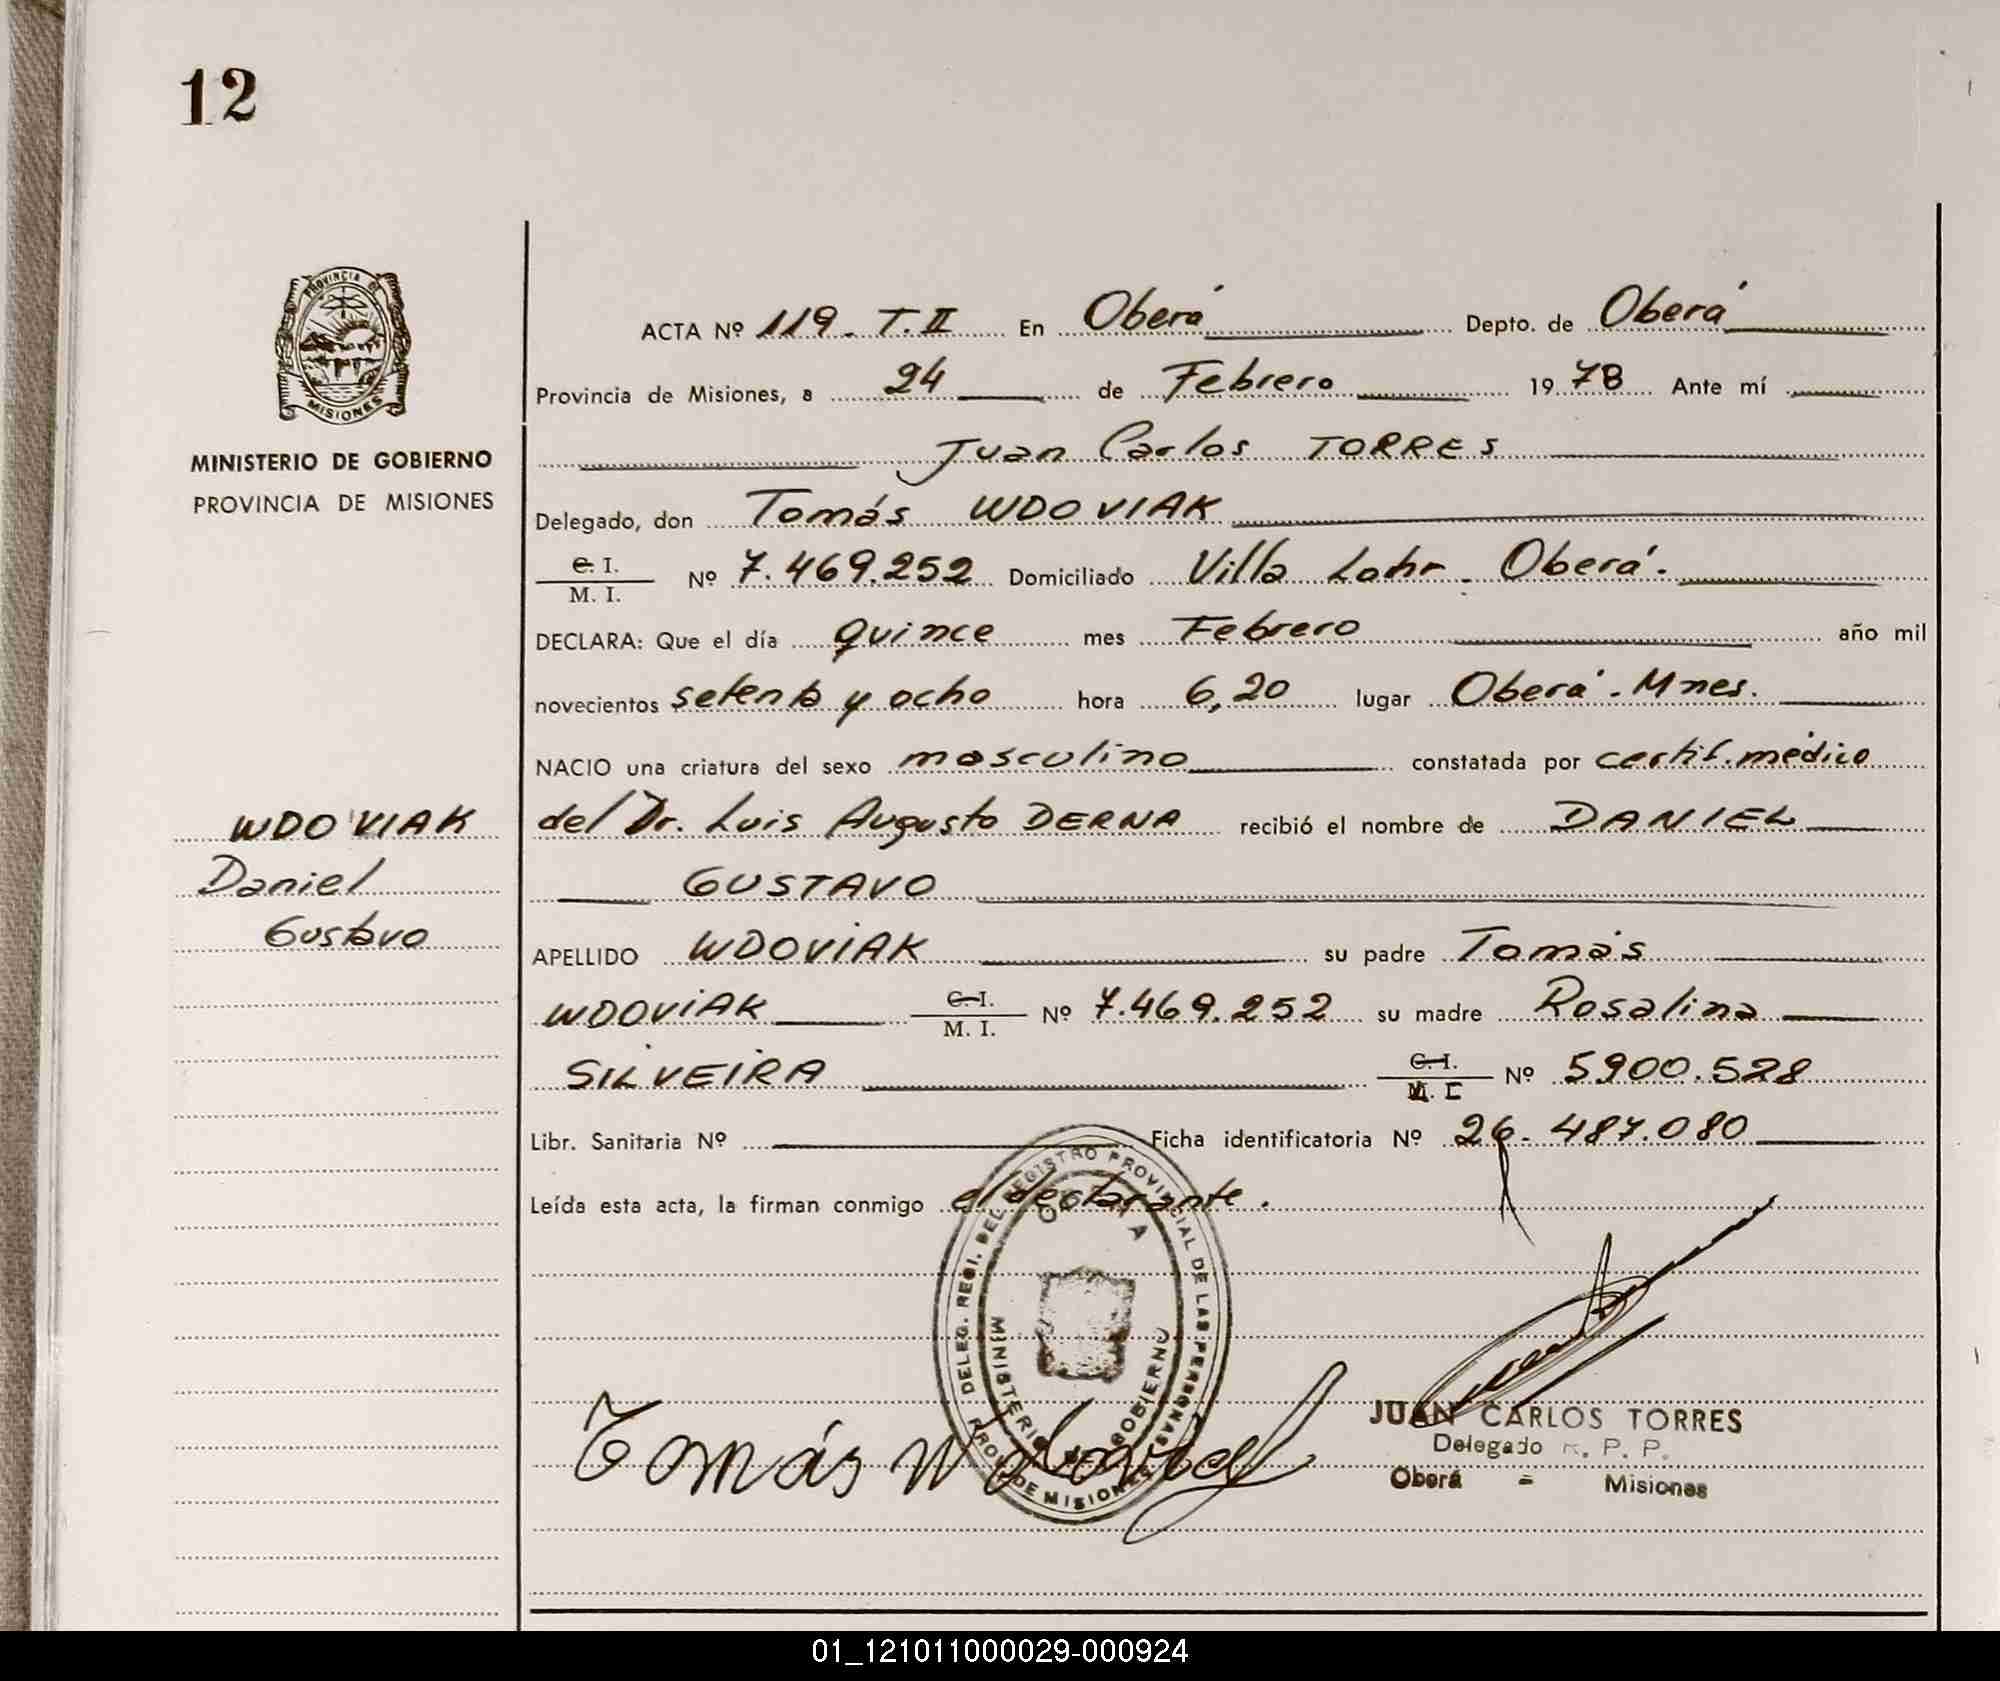 12
PROVINCIA DE
MISIONES
MINISTERIO DE GOBIERNO
PROVINCIA DE MISIONES
ACTA Nº 119. T. II En Oberá Depto. de Oberá
Provincia de Misiones, a 24 de Febrero 1978 Ante mí
Juan Carlos TORRES
Delegado, don Tomás WDOVIAK
C. I.
M. I.
Nº 7.469.252 Domiciliado Villa Lohr. Oberá.
DECLARA: Que el día quince mes Febrero año mil
novecientos setenta y ocho hora 6,20 lugar Oberá. Mnes.
NACIO una criatura del sexo masculino constatada por certif. médico
del Dr. Luis Augusto DERNA recibió el nombre de DANIEL
GUSTAVO
WDOVIAK
Daniel
Gustavo
APELLIDO WDOVIAK su padre Tomás
WDOVIAK C. I. M. I. Nº 7.469.252 su madre Rosalina
SILVEIRA C. I. Nº 5900.528
Libr. Sanitaria Nº Ficha identificatoria Nº 26.487.080
Leída esta acta, la firman conmigo el declarante.
DELEG. REGI. DEL REGISTRO PROVINCIAL DE LAS PERSONAS
MINISTERIO DE GOBIERNO
PROV. DE MISIONES
Tomás
JUAN CARLOS TORRES
Delegado R. P. P.
Oberá - Misiones
01_121011000029-000924